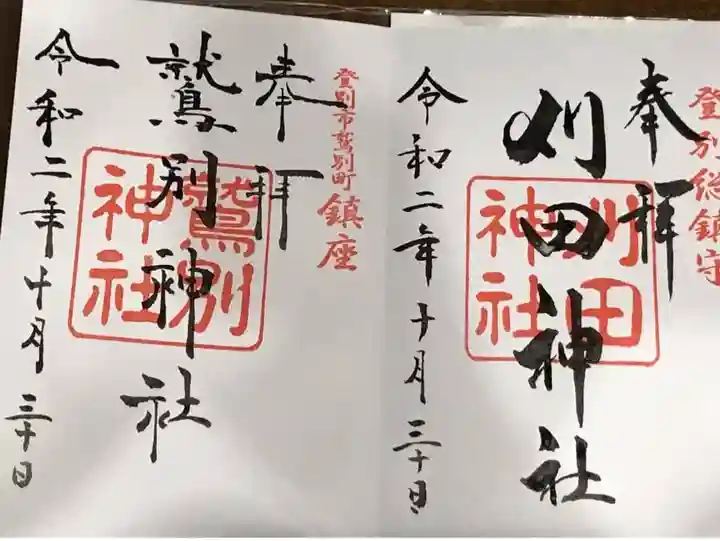 登別総鎮守
奉拝
刈田神社
刈田
神社
令和二年十月三十日
登別市鷲別町鎮座
奉拝
鷲別神社
鷲別
神社
令和二年十月三十日